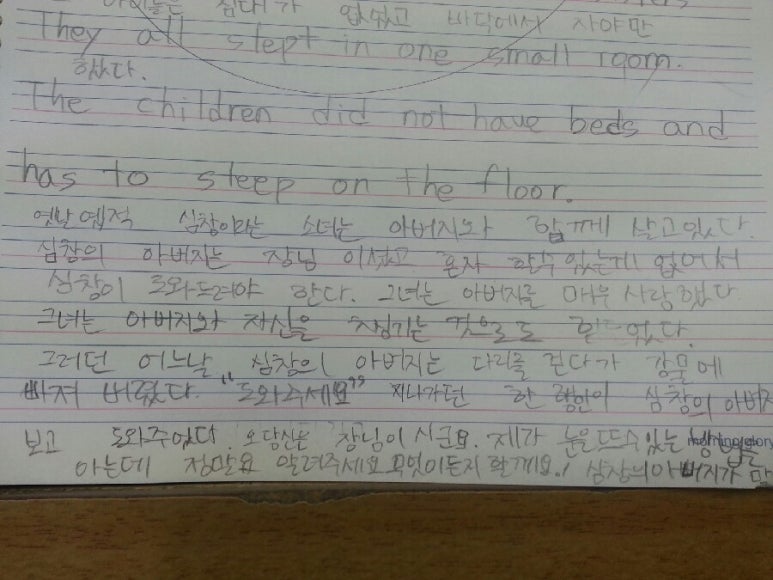 침대가 없었고 바닥에서 자야만
They all slept in one small room.
했다.
The children did not have beds and
has to sleep on the floor.
옛날옙적 심창이라는 소녀는 아버지와 함께 살고있다.
심창의 아버지는 장님 이셨고 혼자 할수있는게 없어서
심창이 도와드려야 한다. 그녀는 아버지를 매우 사랑했다
그녀는 아버지와 자신을 챙기는 것으로도 힘들었다.
그러던 어느날 심창의 아버지는 다리를 걷다가 강물에
빠져 버렸다. "도와주세요" 지나가던 한 심창의 아버지
보고 도와주었다 오 당신은 장님이시군요. 제가 눈을뜨수있는 방법을
아는데 정말요 알려주세요 무엇이든지 할게요! 심창의아버지가 말